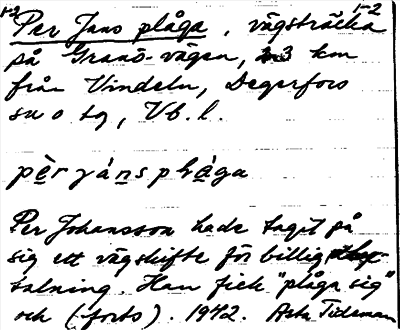 1-2 1-2
Per Jans plåga, vägsträcka
på Granö-vägen, 3 km
från Vindeln, Degerfors
sn o tg, Vb. l.
pèr yánsplåga
Per Johansson hade tagit på
sig ett vägskifte för billig
talning. Han fick "plåga sig"
och (forts). 1942. Asta Tideman